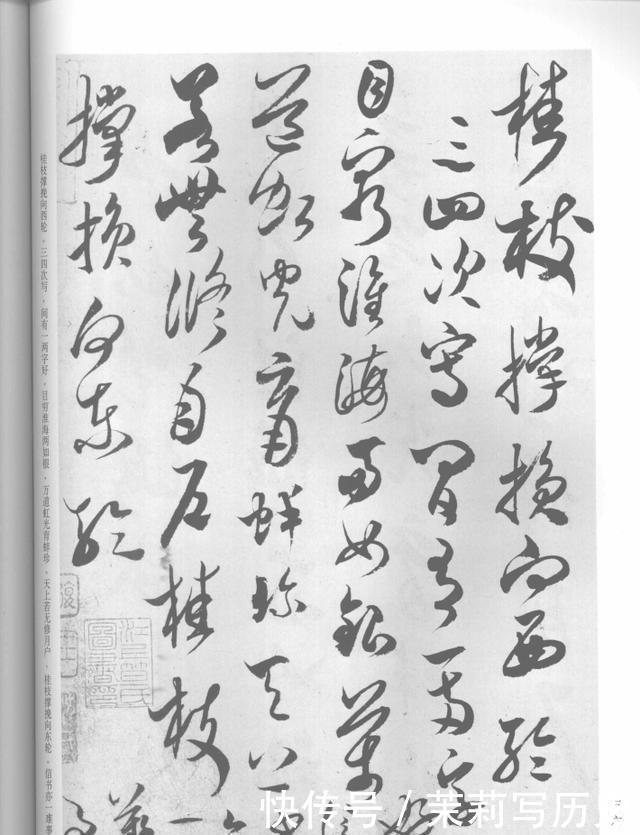 桂枝撑損向西輪
三四次寫間有一兩字
目窮淮海兩如銀萬
道虹光育蚌珎天上
若無修月户桂枝
撑損向東輪
桂枝撑挽向西轮，三四次写，间有一两字好，目穷淮海两如银，万道虹光育蚌珍，天上若无修月户，桂枝撑挽向东轮，信书亦一难事
快传号 / 茉莉写历史